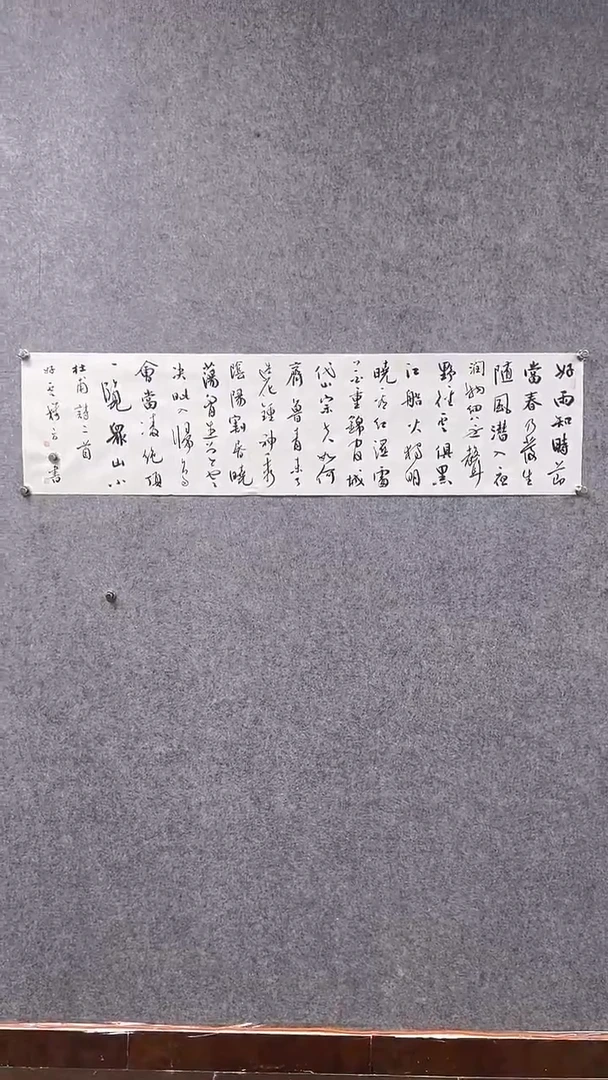 好雨知時節
當春乃發生
随風潜入夜
润物细无聲
野径雲俱黑
江船火獨明
曉看红湿處
花重錦官城
岱宗夫如何
齊魯青未了
造化鍾神秀
陰陽割昏曉
蕩胷生層雲
决眥入歸鳥
會當凌绝頂
一覽眾山小
杜甫詩二首
書